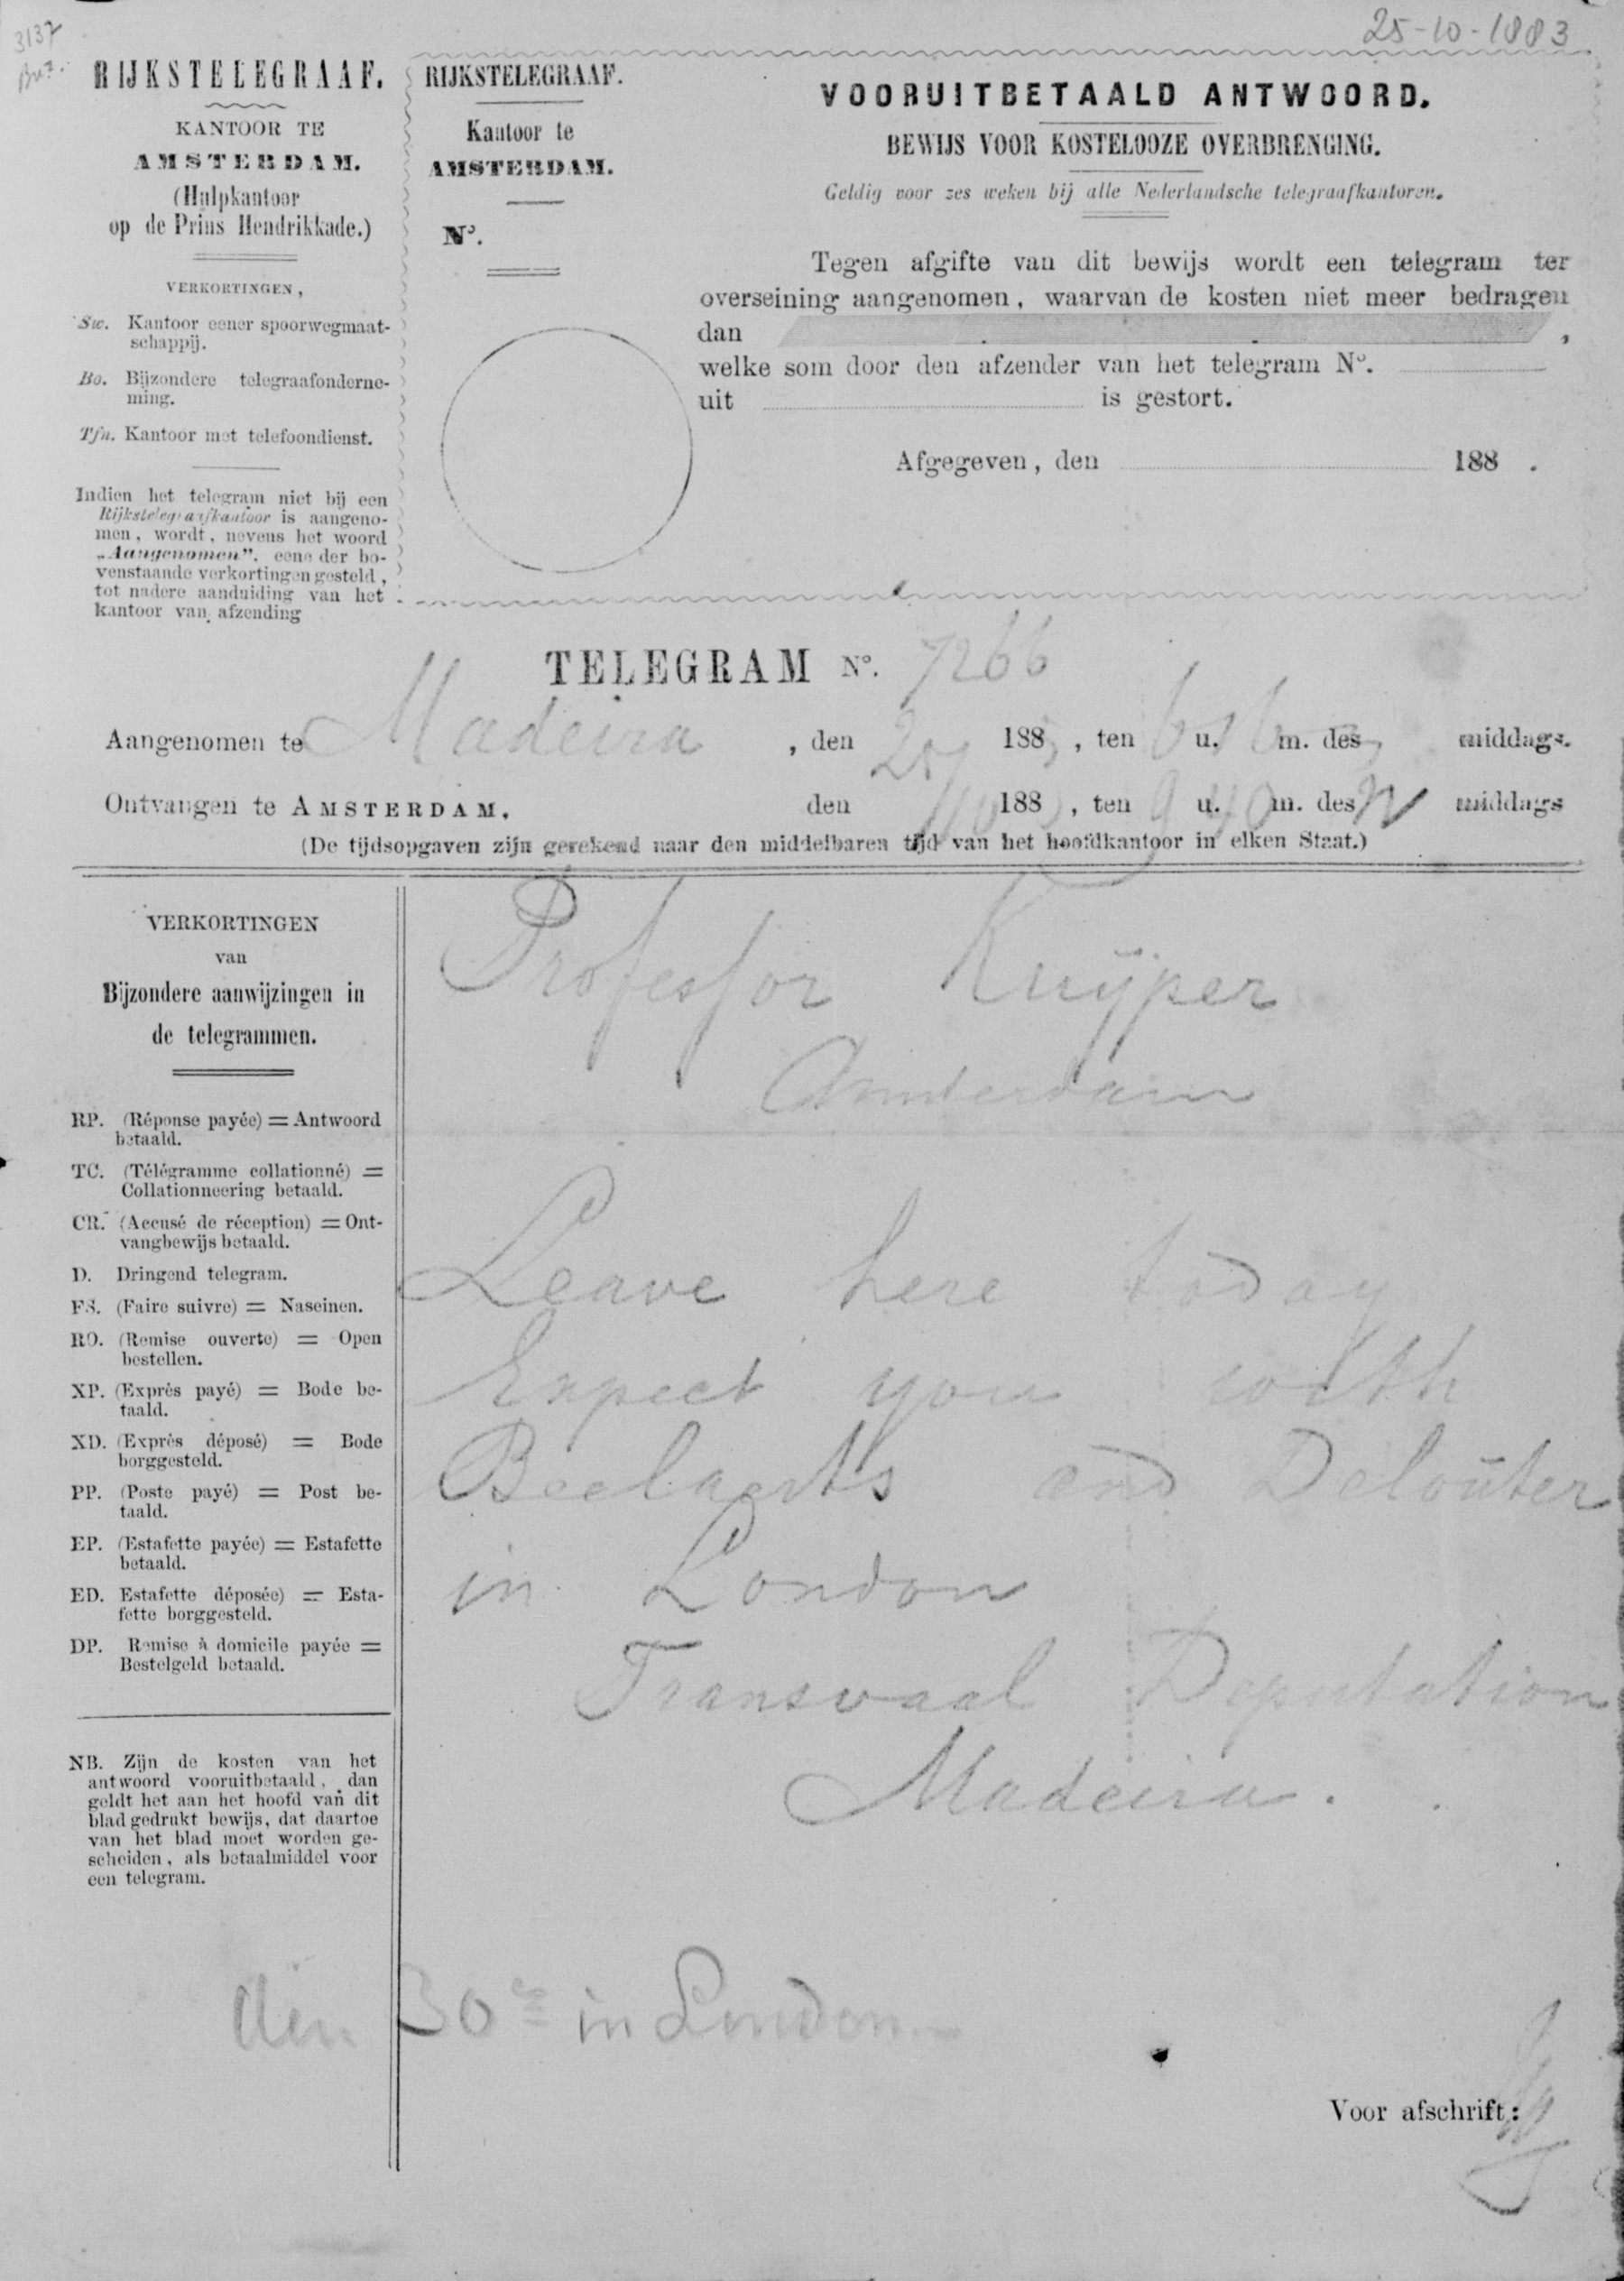 3137
25-10-1883
RIJKSTELEGRAAF.
KANTOOR TE
AMSTERDAM.
(Hulpkantoor
op de Prins Hendrikkade.)
VERKORTINGEN,
Sw. Kantoor eener spoorwegmaat-
schappij.
Bo. Bijzondere telegraafonderne-
ming.
Tfn. Kantoor met telefoondienst.
Indien het telegram niet bij een
Rijkstelegraafkantoor is aangeno-
men, wordt, nevens het woord
„Aangenomen”, eene der bo-
venstaande verkortingen gesteld,
tot nadere aanduiding van het
kantoor van afzending
RIJKSTELEGRAAF.
Kantoor te
AMSTERDAM.
No.
VOORUITBETAALD ANTWOORD.
BEWIJS VOOR KOSTELOOZE OVERBRENGING.
Geldig voor zes weken bij alle Nederlandsche telegraafkantoren.
Tegen afgifte van dit bewijs wordt een telegram ter
overseining aangenomen, waarvan de kosten niet meer bedragen
dan ,
welke som door den afzender van het telegram No.
uit is gestort.
Afgegeven, den 188 .
TELEGRAM No. 7266
Aangenomen te Madeira , den 188 , ten u. m. des middags.
Ontvangen te AMSTERDAM. den 188 , ten 9 u. 40 m. des middags
(De tijdsopgaven zijn gerekend naar den middelbaren tijd van het hoofdkantoor in elken Staat.)
VERKORTINGEN
van
Bijzondere aanwijzingen in
de telegrammen.
RP. (Réponse payée) = Antwoord
betaald.
TC. (Télégramme collationné) =
Collationneering betaald.
CR. (Accusé de réception) = Ont-
vangbewijs betaald.
D. Dringend telegram.
FS. (Faire suivre) = Naseinen.
RO. (Remise ouverte) = Open
bestellen.
XP. (Exprès payé) = Bode be-
taald.
XD. (Exprès déposé) = Bode
borggesteld.
PP. (Poste payé) = Post be-
taald.
EP. (Estafette payée) = Estafette
betaald.
ED. Estafette déposée) = Esta-
fette borggesteld.
DP. Remise à domicile payée =
Bestelgeld betaald.
NB. Zijn de kosten van het
antwoord vooruitbetaald, dan
geldt het aan het hoofd van dit
blad gedrukt bewijs, dat daartoe
van het blad moet worden ge-
scheiden, als betaalmiddel voor
een telegram.
Professor Kuijper
Amsterdam
Leave here today
Expect you with
Beelaerts and Deloüter
in London
Transvaal Deputation
Madeira.
den 30e in London
Voor afschrift: